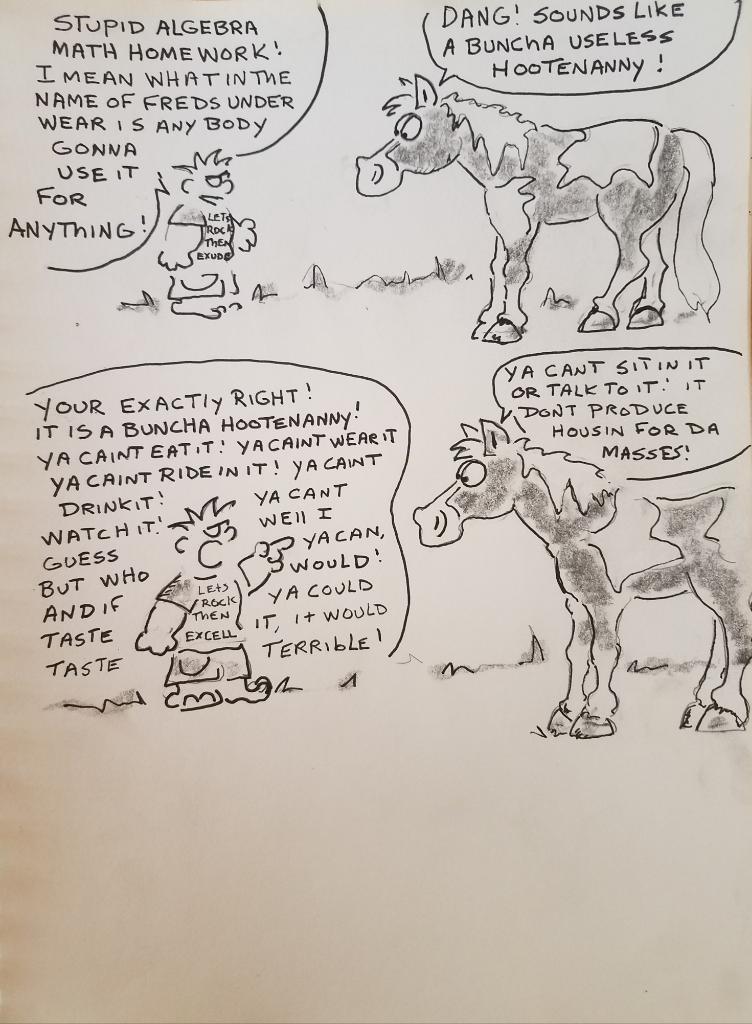 STUPID ALGEBRA
MATH HOMEWORK!
I MEAN WHAT IN THE
NAME OF FREDS UNDER
WEAR IS ANY BODY
GONNA
USE IT
FOR
ANYTHING!
LETS
ROCK
THEN
EXUDE
DANG! SOUNDS LIKE
A BUNCHA USELESS
HOOTENANNY!
YOUR EXACTLY RIGHT!
IT IS A BUNCHA HOOTENANNY!
YA CAINT EAT IT! YA CAINT WEAR IT
YA CAINT RIDE IN IT! YA CAINT
DRINK IT! YA CANT
WATCH IT! WELL I
GUESS YA CAN,
BUT WHO WOULD!
AND IF YA COULD
TASTE IT, IT WOULD
TASTE TERRIBLE!
LETS
ROCK
THEN
EXCELL
YA CANT SIT IN IT
OR TALK TO IT! IT
DONT PRODUCE
HOUSIN FOR DA
MASSES!